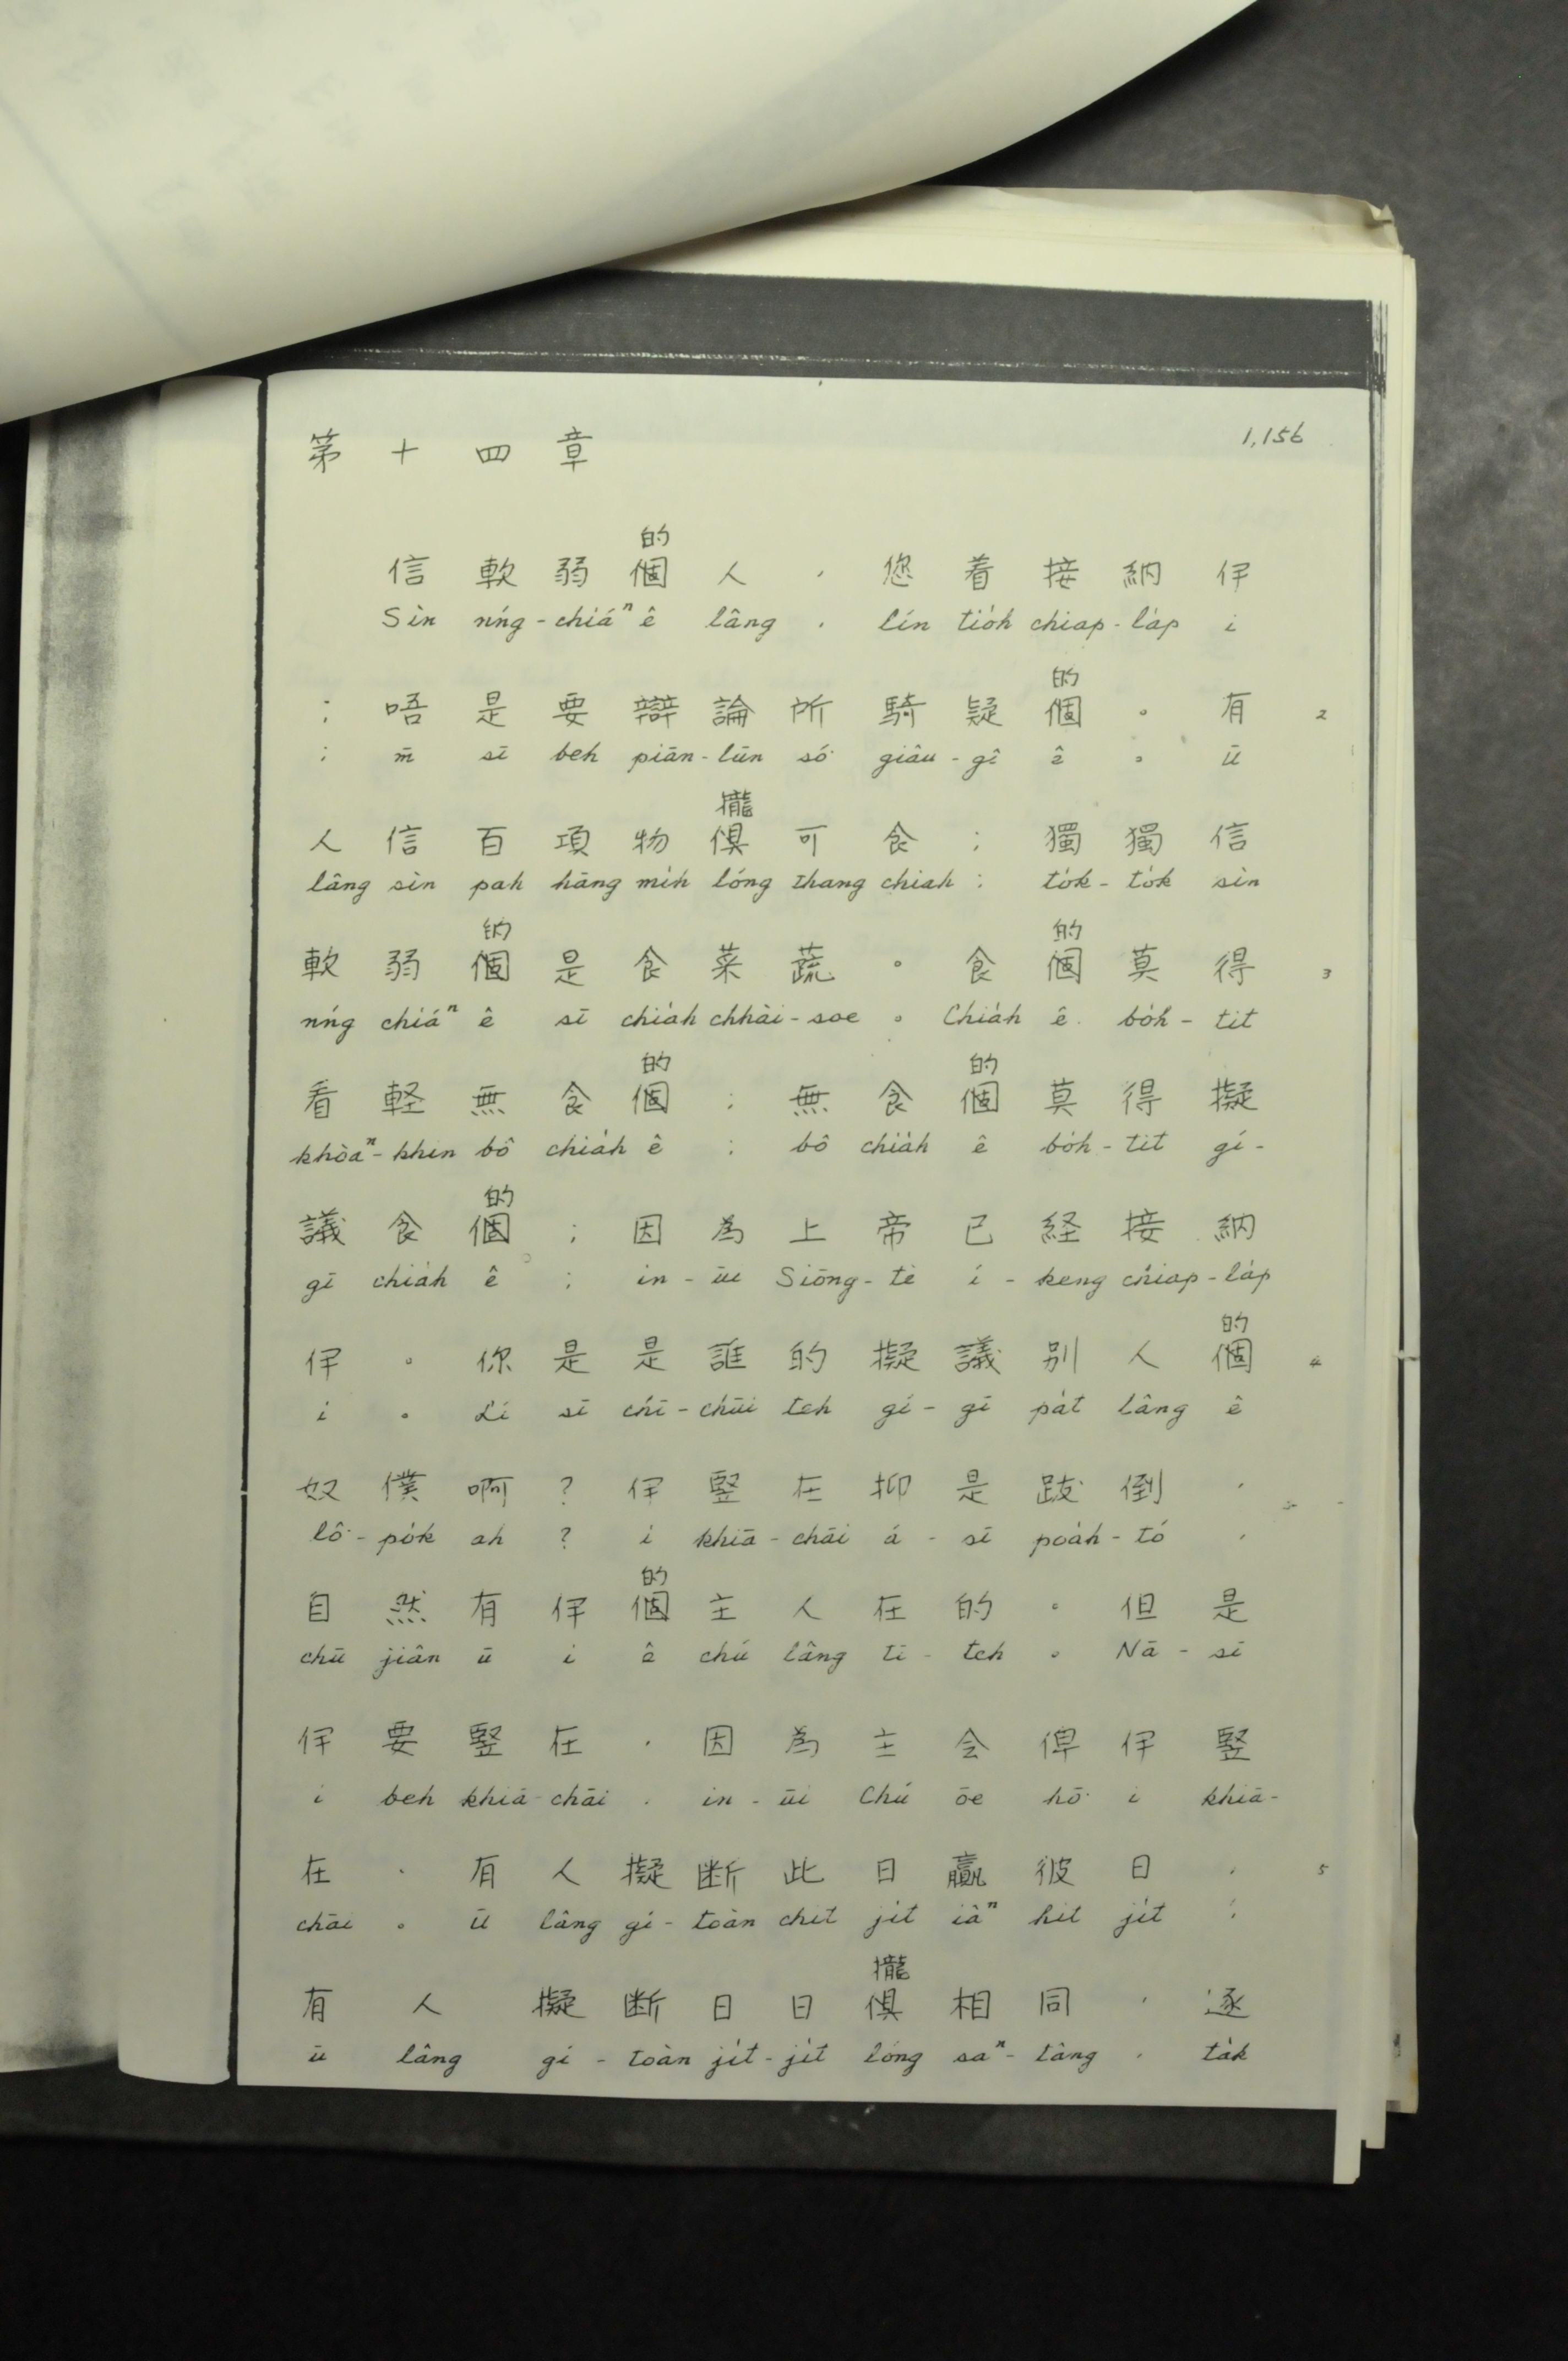 1,156
第十四章
的
信軟弱個人，您着接納伊
Sìn nńg-chiáⁿ ê lâng, lín tio̍h chiap-la̍p i
的
；唔是要辯論所騎疑個。有 2
; m̄ sī beh piān-lūn só͘ giâu-gî ê。ū
攏
人信百項物俱可食；獨獨信
lâng sìn pah hāng mi̍h lóng thang chiah; to̍k-to̍k sìn
的 的
軟弱個是食菜蔬。食個莫得 3
nńg chiáⁿ ê sī chia̍h chhài-soe。Chia̍h ê bo̍h-tit
的 的
看軽無食個；無食個莫得擬
khòaⁿ-khin bô chia̍h ê; bô chia̍h ê bo̍h-tit gí-
的
議食個；因為上帝已経接納
gī chia̍h ê; in-ūi Siōng-tè í-keng chiap-la̍p
的
伊。你是是誰的擬議别人個 4
i。Lí sī chī-chūi teh gí-gī pa̍t lâng ê
奴僕啊？伊竪在抑是跋倒，
lô͘-po̍k ah? i khiā-chāi á-sī poa̍h-tó,
的
自然有伊個主人在的。但是
chū jiân ū i ê chú lâng tī-teh。Nā-sī
伊要竪在，因為主会俾伊竪
i beh khiā-chāi, in-ūi Chú ōe hō͘ i khiā-
在，有人擬断此日贏彼日， 5
chāi。Ū lâng gí-toàn chit ji̍t iâⁿ hit ji̍t;
攏
有人擬断日日俱相同，逐
ū lâng gí-toàn ji̍t-ji̍t lóng saⁿ-tâng, ta̍k